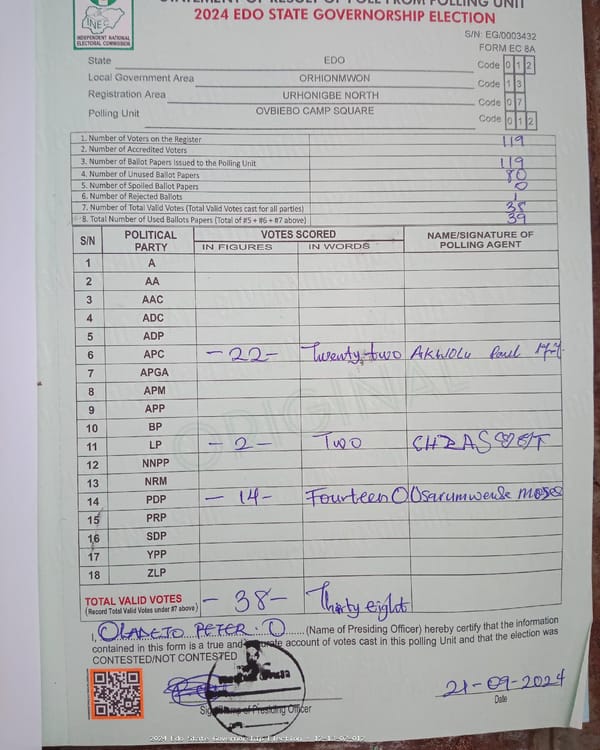 INEC
INDEPENDENT NATIONAL
ELECTORAL COMMISSION
STATEMENT OF RESULT OF POLL FROM POLLING UNIT
2024 EDO STATE GOVERNORSHIP ELECTION
S/N: EG/0003432
FORM EC 8A
State EDO Code 0 1 2
Local Government Area ORHIONMWON Code 1 3
Registration Area URHONIGBE NORTH Code 0 7
Polling Unit OVBIEBO CAMP SQUARE Code 0 1 2
1. Number of Voters on the Register 119
2. Number of Accredited Voters
3. Number of Ballot Papers Issued to the Polling Unit 119
4. Number of Unused Ballot Papers 80
5. Number of Spoiled Ballot Papers 0
6. Number of Rejected Ballots 1
7. Number of Total Valid Votes (Total Valid Votes cast for all parties) 38
8. Total Number of Used Ballots Papers (Total of #5 + #6 + #7 above) 39
S/N POLITICAL PARTY VOTES SCORED NAME/SIGNATURE OF POLLING AGENT
IN FIGURES IN WORDS
1 A
2 AA
3 AAC
4 ADC
5 ADP
6 APC -22- Twenty-two AKWOLU Paul
7 APGA
8 APM
9 APP
10 BP
11 LP -2- Two
12 NNPP
13 NRM
14 PDP -14- Fourteen Osarumwense moses
15 PRP
16 SDP
17 YPP
18 ZLP
ORIGINAL
TOTAL VALID VOTES -38- Thirty eight
(Record Total Valid Votes under #7 above)
I, OLADEJO PETER. O (Name of Presiding Officer) hereby certify that the information
contained in this form is a true and account of votes cast in this polling Unit and that the election was
CONTESTED/NOT CONTESTED
21-09-2024
Date
of Presiding Officer
2024 Edo State Governorship Election - 12-13-07-012